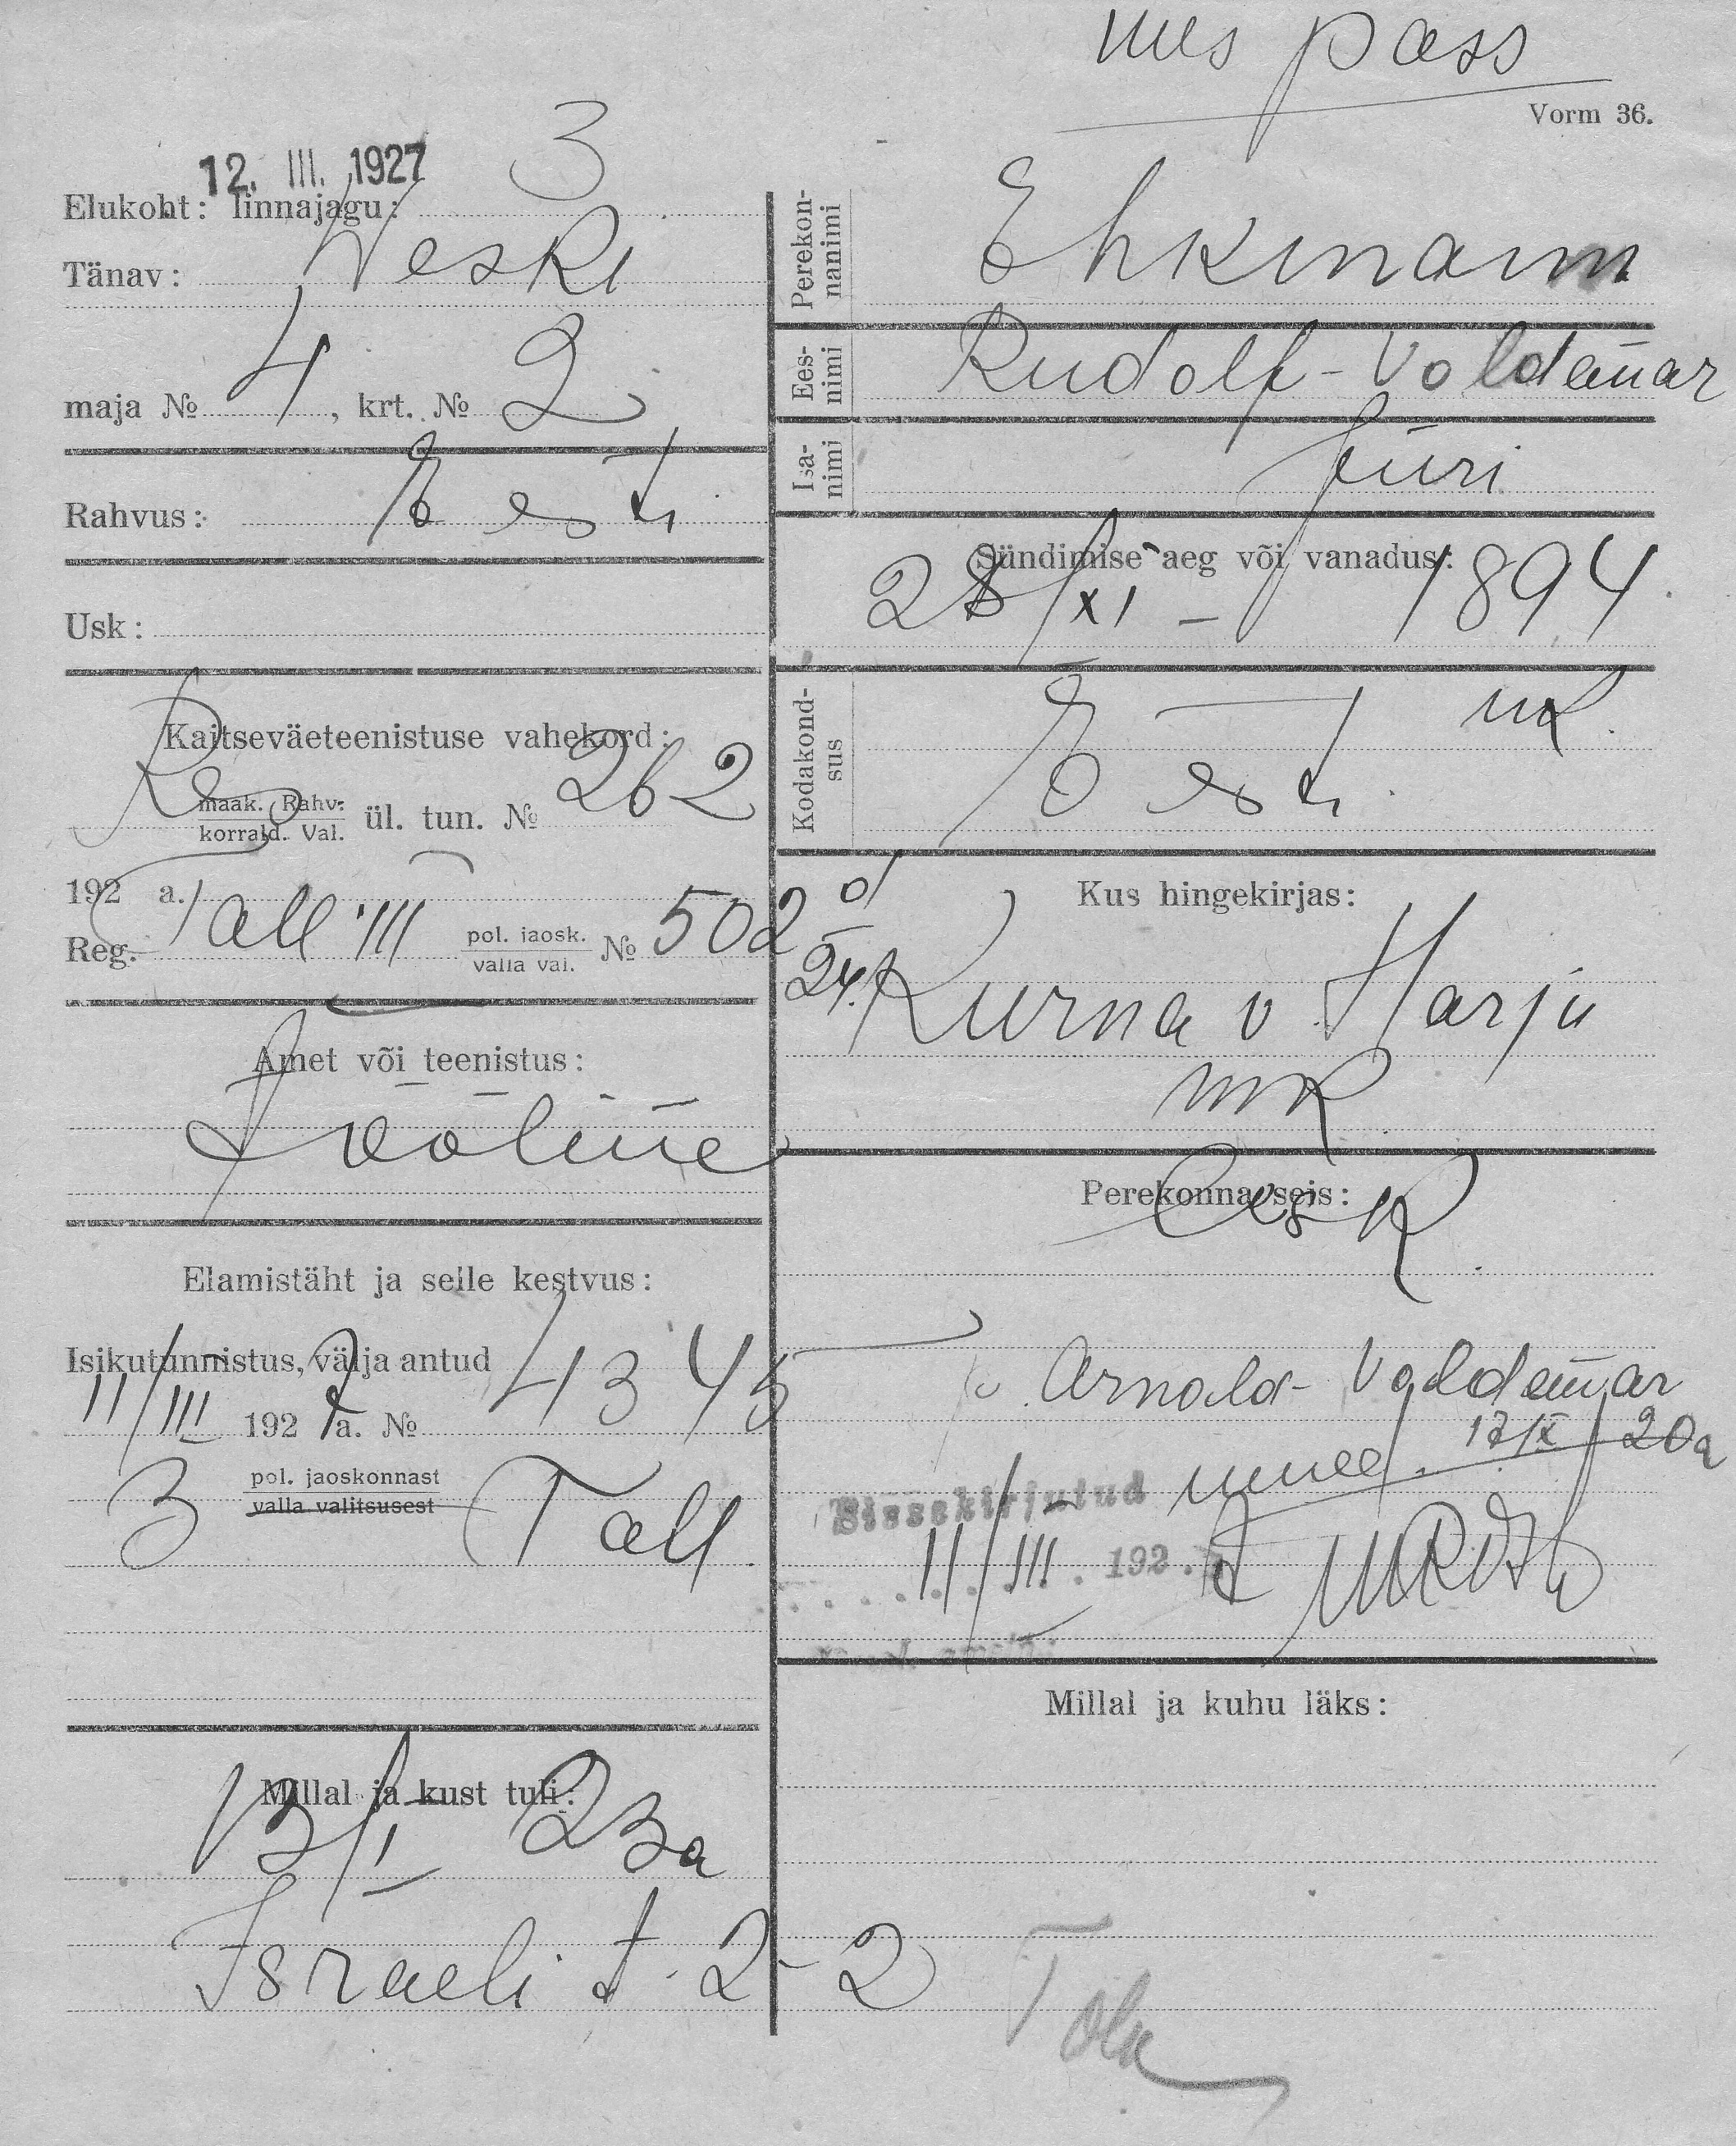 uus pass
Vorm 36.
12. III. 1927
Elukoht: linnajagu: 3
Tänav: Weski
maja № 4, krt. № 2
Rahvus: Eesti
Usk:
Kaitseväeteenistuse vahekord:
maak. Rahv.
korrald. Val. ül. tun. № 262
192 a.
Reg. Tall III pol. jaosk.
valla val. № 502
24.
Amet või teenistus:
Tööline
Elamistäht ja selle kestvus:
Isikutunnistus, välja antud
11/III 1927 a. № 4345
3 pol. jaoskonnast
valla valitsusest Tall.
Millal ja kust tuli:
13/I 23a
Israeli t. 2-2
Perekonnanimi Ehkmann
Eesnimi Rudolf-Voldemar
Isanimi Jüri
Sündimise aeg või vanadus:
28/XI - 1894
Kodakondsus Eesti
Kus hingekirjas:
Kurna v. Harju
mk
Perekonnaseis:
Lesk
p. Arnold-Voldemar
17/IX 20a
Sissekirjutud
11/III 1927
Millal ja kuhu läks: